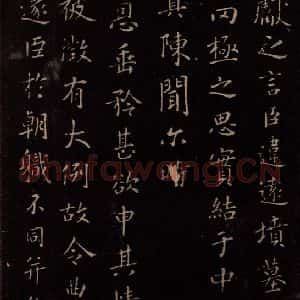 獻之言臣違遠墳墓
罔極之思實結于中
其陳聞尓時
恩垂矜甚欲申其情
被徵有大例故令
遂臣於朝職不同并
Shufawang.CN